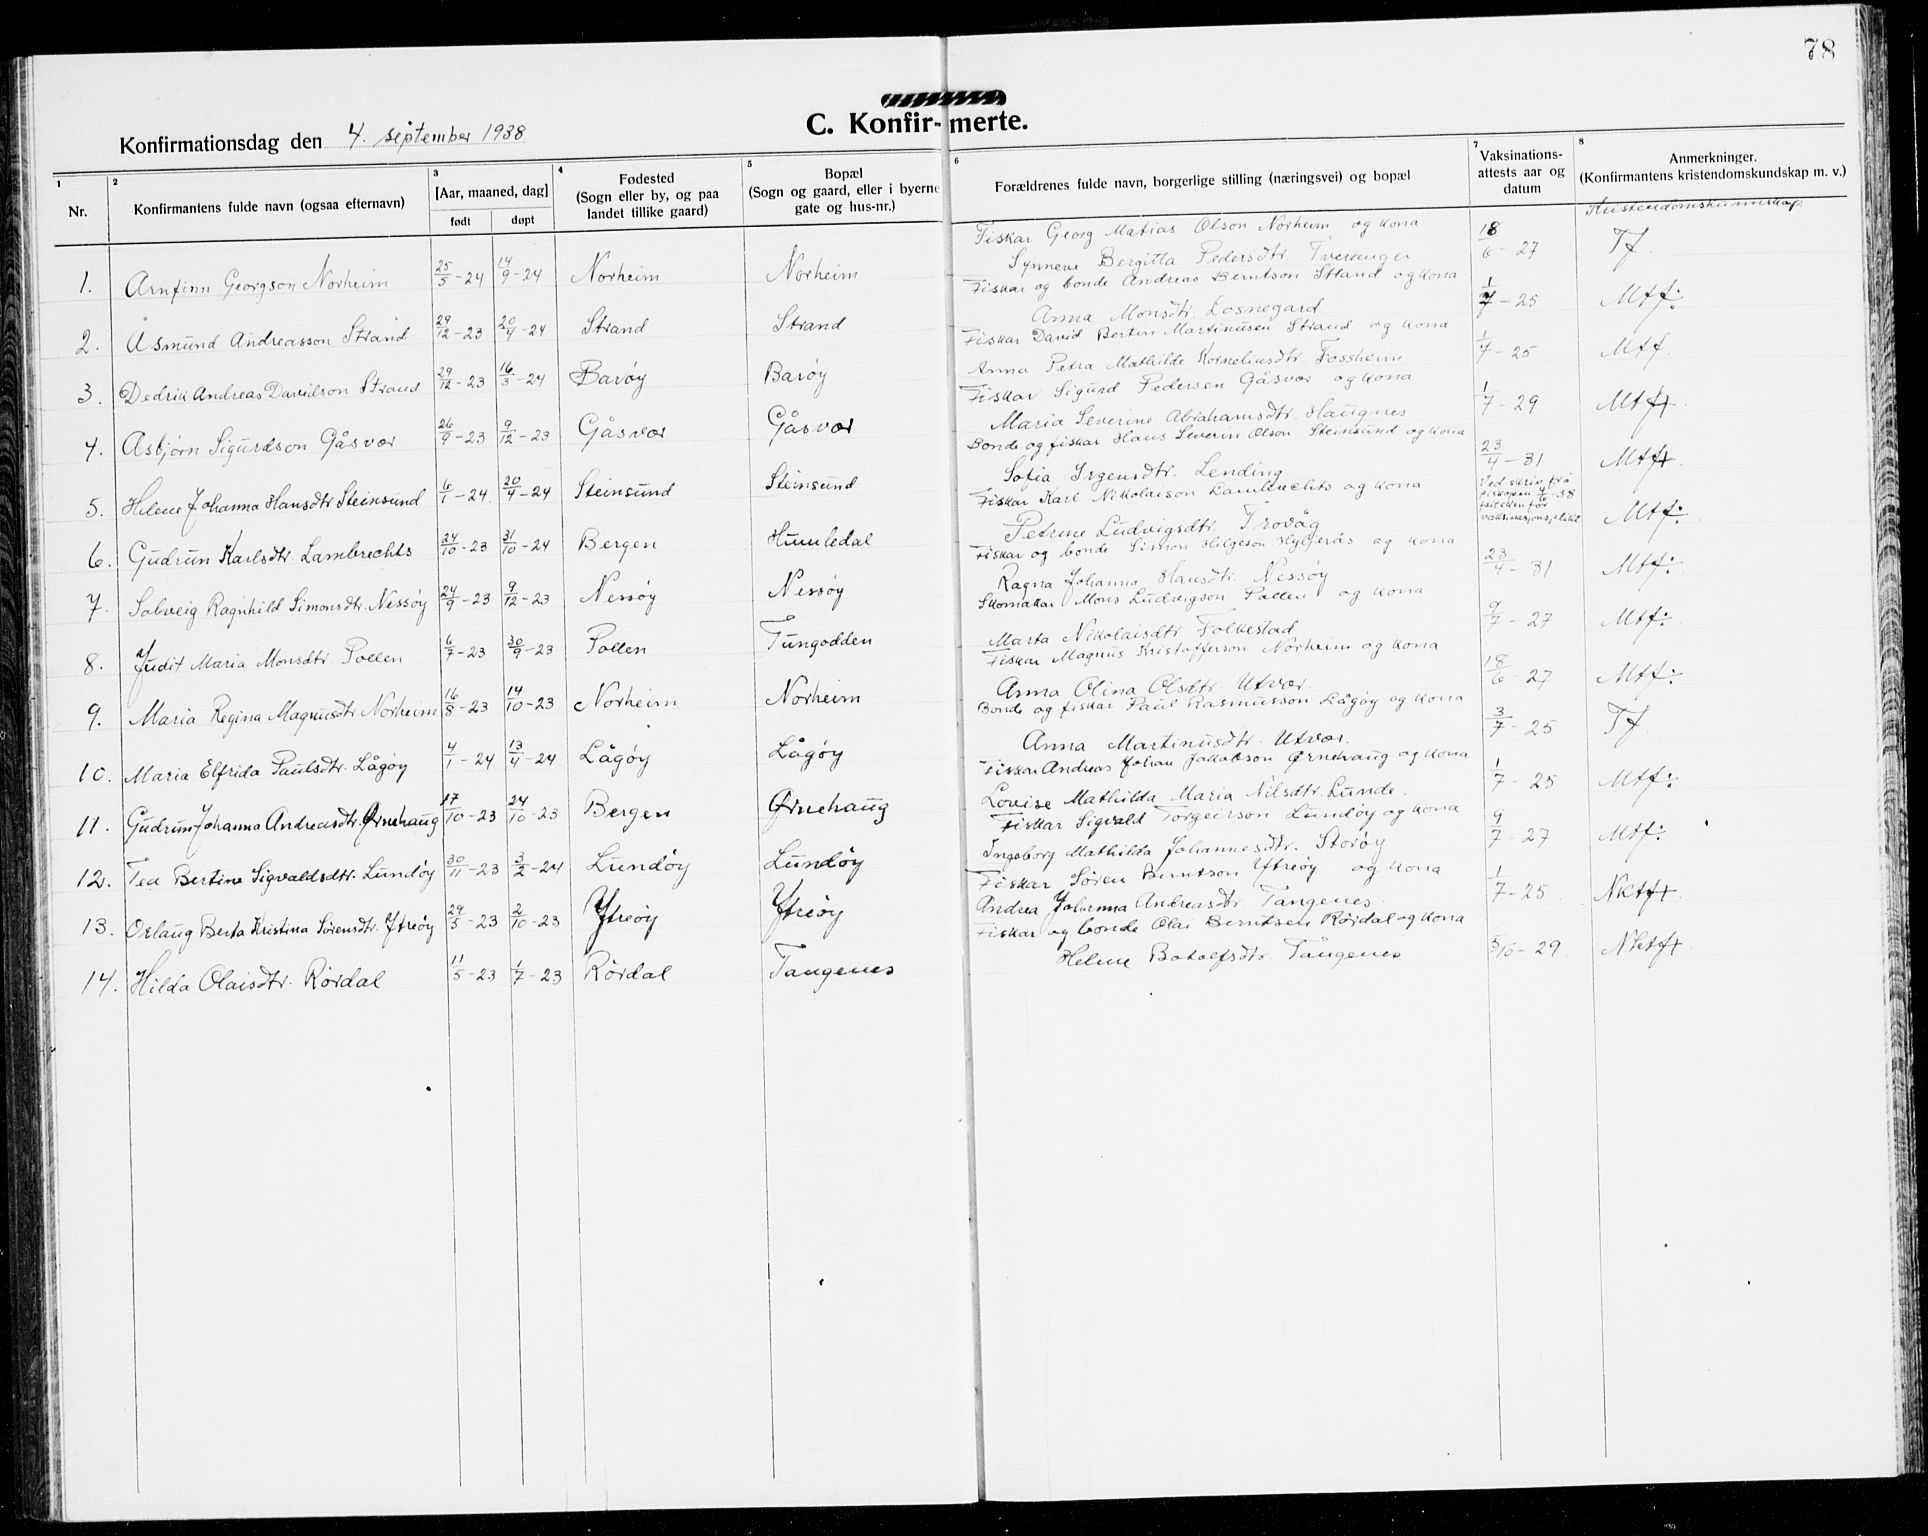 78
C. Konfirmerte.
Konfirmationsdag den 4. september 1938
1 2 3 4 5 6 7 8
Nr.
Konfirmantens fulde navn (ogsaa efternavn)
[Aar, maaned, dag]
født døpt
Fødested
(Sogn eller by, og paa
landet tillike gaard)
Bopæl
(Sogn og gaard, eller i byerne
gate og hus-nr.)
Forældrenes fulde navn, borgerlige stilling (næringsvei) og bopæl
Vaksinations-
attests aar og
datum
Anmerkninger.
(Konfirmantens kristendomskundskap m. v.)
Kristendomskunnskap
1. Arnfinn Georgson Norheim 25/5-24 14/9-24 Norheim Norheim Fiskar Georg Matias Olson Norheim og kona
Synneve Bergitta Pedersdtr. Tveranger 18/6-27 Tf
2. Åsmund Andreasson Strand 29/12-23 20/4-24 Strand Strand Fiskar og bonde Andreas Berntson Strand og kona
Anna Monsdtr. Losnegard 1/7-25 Mtf.
3. Dedrik Andreas Davidson Strand 29/12-23 16/3-24 Barøy Barøy Fiskar David Bertin Martinusen Strand og kona
Anna Petra Mathilde Korneliusdtr. Fossheim 1/7-25 Mtf
4. Asbjørn Sigurdson Gåsvær 26/9-23 9/12-23 Gåsvær Gåsvær Fiskar Sigurd Pedersen Gåsvær og kona
Maria Severine Abrahamsdtr. Haugnes 1/7-29 Mtf+
5. Helene Johanna Hansdtr Steinsund 6/1-24 20/4-24 Steinsund Steinsund Bonde og fiskar Hans Severin Olson Steinsund og kona
Sofia Irgensdtr. Lending 23/4-31 Mtf+
6. Gudrun Karlsdtr. Lambrechts 24/10-23 31/10-24 Bergen Humledal Fiskar Karl Nikolaison Lambrechts og kona
Petrine Ludvigsdtr. Trovåg Ved skriv frå
biskopen 1/6-38
friteken for
vaksinasjonsplikt Mtf.
7. Solveig Ragnhild Simonsdtr. Nessøy 24/9-23 9/12-23 Nessøy Nessøy Fiskar og bonde Simon Helgeson og kona
Ragna Johanna Hansdtr. Nessøy 23/4-31 Mtf.
8. Judit Maria Monsdtr. Pollen 6/7-23 30/9-23 Pollen Tungodden Skomakar Mons Ludvigson Pollen og kona
Marta Nikolaisdtr. Folkestad 9/7-27 Mtf.
9. Maria Regina Magnusdtr Norheim 16/8-23 14/10-23 Norheim Norheim Fiskar Magnus Kristofferson Norheim og kona
Anna Olina Olsdtr. Utvær 18/6-27 Mtf.
10. Maria Elfrida Paulsdtr. Lågøy 4/1-24 13/4-24 Lågøy Lågøy Bonde og fiskar Paul Rasmusson Lågøy og kona
Anna Martinusdtr. Utvær. 3/7-25 Tf
11. Gudrun Johanna Andreasdtr. Ørnehaug 17/10-23 24/10-23 Bergen Ørnehaug Fiskar Andreas Johan Jakobson Ørnehaug og kona
Lovise Mathilda Maria Nilsdtr. Lunde. 1/7-25 Mtf.
12. Tea Bertine Sigvaldsdtr. Lundøy 30/11-23 3/2-24 Lundøy Lundøy Fiskar Sigvald Torgeirson Lundøy og kona
Ingeborg Mathilda Johannesdtr. Storøy 9/7-27 Mtf.
13. Oslaug Berta Kristina Sørensdtr. Ytreøy 29/5-23 2/10-23 Ytreøy Ytreøy Fiskar Søren Berntson Ytreøy og kona
Andrea Johanna Andreasdtr. Tangenes 1/7-25 Nktf+
14. Hilda Olaisdtr. Rørdal 11/5-23 1/7-23 Rørdal Tangenes Fiskar og bonde Olai Berntsen Rørdal og kona
Helene Botolfsdtr. Tangenes 5/10-29 Nktf+